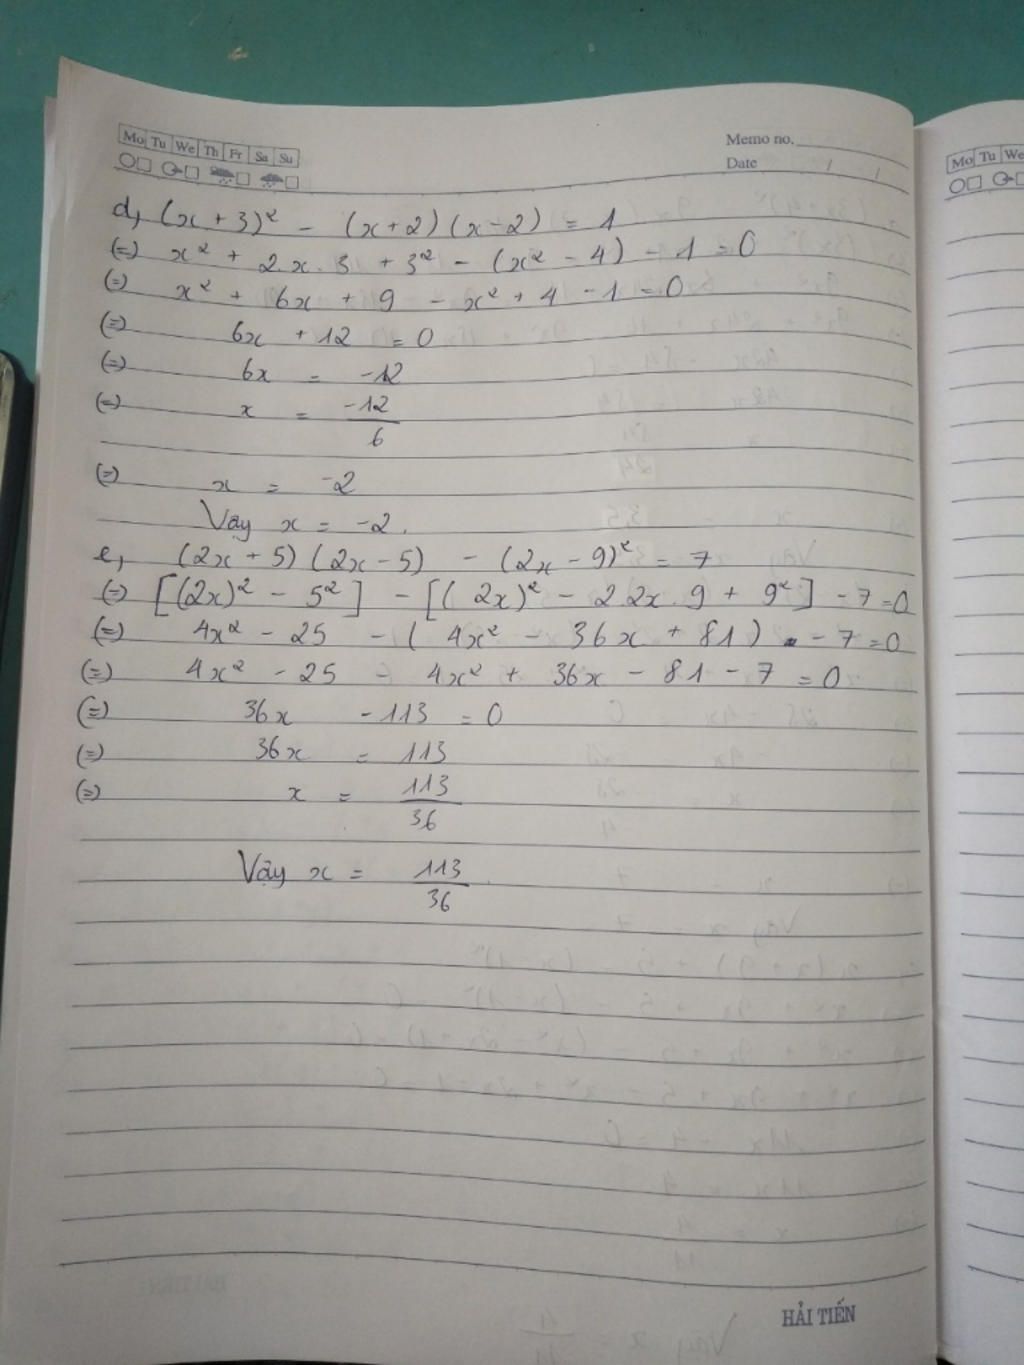 Mo Tu We Th Fr Sa Su
Memo no.
Date / /
d, (x + 3)² - (x + 2) (x - 2) = 1
(=) x² + 2x.3 + 3² - (x² - 4) - 1 = 0
(=) x² + 6x + 9 - x² + 4 - 1 = 0
(=) 6x + 12 = 0
(=) 6x = -12
(=) x = -12/6
(=) x = -2
Vây x = -2.
e, (2x + 5) (2x - 5) - (2x - 9)² = 7
(=) [(2x)² - 5²] - [(2x)² - 2.2x.9 + 9²] - 7 = 0
(=) 4x² - 25 - (4x² - 36x + 81) - 7 = 0
(=) 4x² - 25 - 4x² + 36x - 81 - 7 = 0
(=) 36x - 113 = 0
(=) 36x = 113
(=) x = 113/36
Vậy x = 113/36
HẢI TIẾN
Mo Tu We